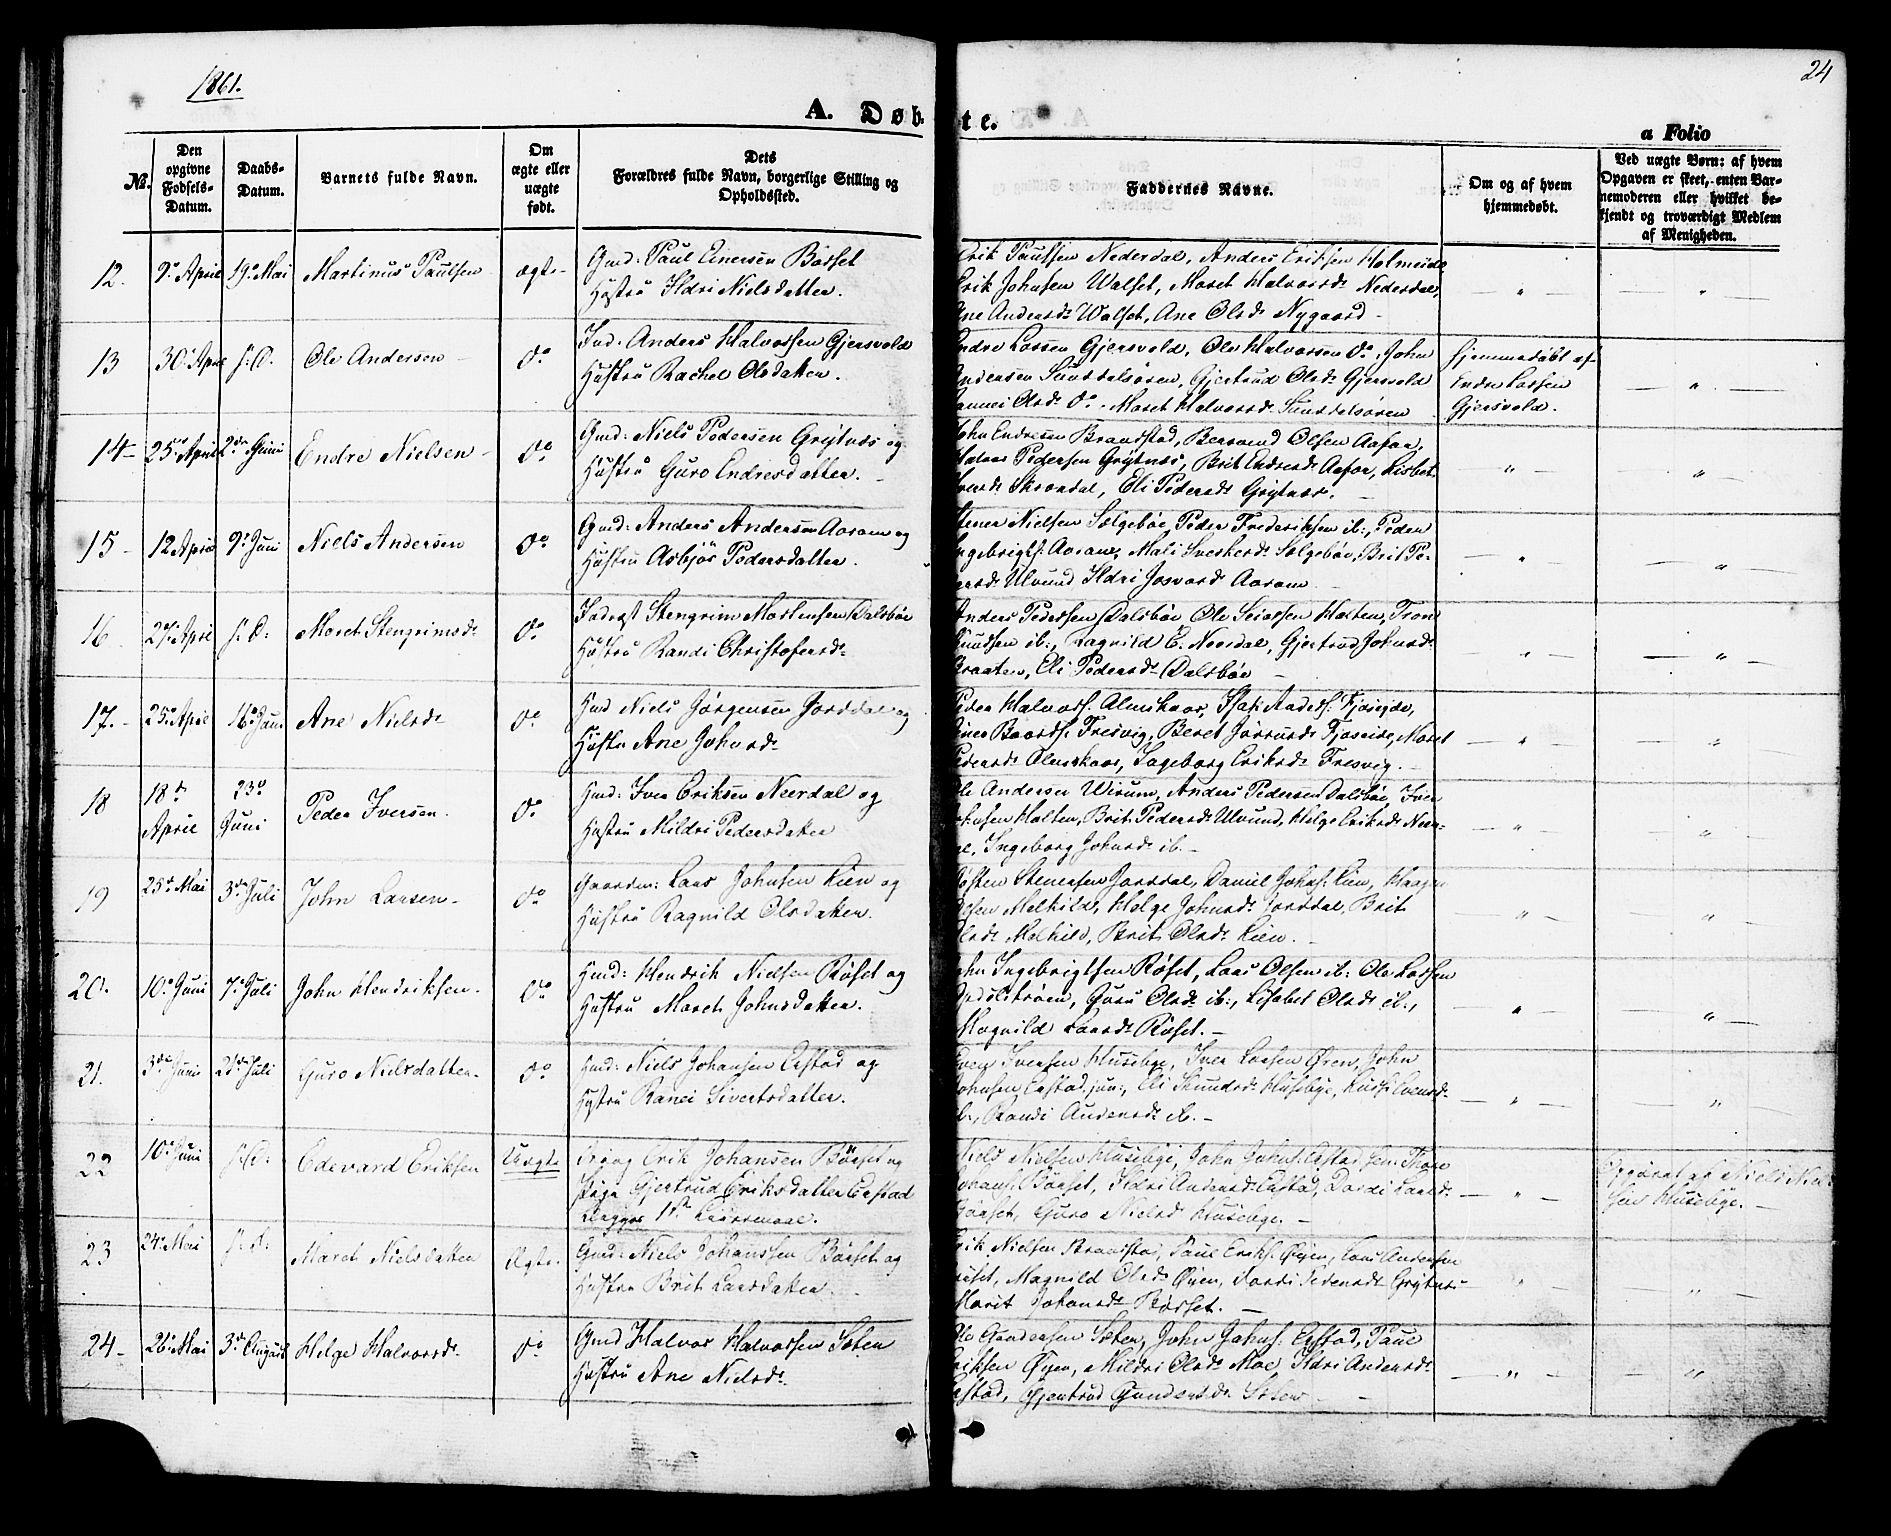 1861.
24
A. Døbte.
a Folio
No.
Den opgivne Fødsels-Datum.
Daabs-Datum.
Barnets fulde Navn.
Om ægte eller uægte født.
Dets Forældres fulde Navn, borgerlige Stilling og Opholdssted.
Faddernes Navne.
Om og af hvem hjemmedøbt.
Ved uægte Børn: af hvem Opgaven er skeet, enten Barnemoderen eller hvilket bekjendt og troværdigt Medlem af Menigheden.
12. 9de April 19de Mai Martinus Paulsen ægte Gmd: Paul Einersen Børset
Hustru Ildri Nielsdatter.
Erik Paulsen Nederdal, Anders Eriksen Holmeide
Erik Johnsen Walset, Maret Halvorsd. Nederdal,
Ane Andersd. Walset, Ane Olsd. Nygaard
13 30. April s: D. Ole Andersen do Ind: Anders Halvorsen Gjersvold
Hustru Rachel Olsdatter.
Endre Larsen Gjersvold, Ole Halvorsen do, John
Andersen Sunddalsøren, Gjertrud Olsd. Gjersvold
Olsd. do. Maret Halvorsd. Sunddalsøren
hjemmedøbt af
Endre Larsen
Gjersvold.
14 25de April 2den Juni Endre Nielsen do Gmd: Niels Pedersen Grytnæs og
Hustru Guro Endresdatter.
John Endresen Brandstad, Olsen Aafar,
Pedersen Grytnæs, Brit Endresd. Aafar, Lisbet
Skrondal, Eli Pedersd. Grytnæs.
15 12 April 9de Juni Niels Andersen do Gmd: Anders Andersen Aaram og
Hustru Asbjør Pedersdatter.
Stener Nielsen Sølgebøe, Peder Frederiksen ib:, Peder
Ingebrigts. Aaram, Mali Sverkersd. Sølgebøe, Brit Pe-
dersd. Ulvund Ildri Josvard. Aaram
16 27. April s: D: Maret Stengrimsd. do Stengrim Mortensen Dalsbøe
Hustru Randi Christofersd.
Anders Pedersen Dalsbøe, Ole Halten, Tron
Knudsen ib:, Ragnild E. Neerdal, Gjertrud Johnsd.
Braaten, Eli Pedersd. Dalsbøe
17. 25de April 16de Juni Ane Nielsd. do Gmd Niels Jørgensen Jorddal og
Hustru Ane Johnsd.
Peder Halvors. Almskaar, Isak Anders. Fjoseide,
Einer Baards. Fresvig, Beret Fjoseide, Maret
Pedersd. Almskaar, Ingeborg Eriksd. Fresvig.
18 18de April 23de Juni Peder Iversen. do Gmd: Iver Eriksen Neerdal og
Hustru Mildri Pedersdatter
Ole Andersen Wirum, Anders Pedersen Dalsbøe, Iver
Halten, Brit Pedersd. Ulvund, Helge Eriksd.
Ingeborg Johnsd. ib.
19 25de Mai 3die Juli John Larsen. do Gaardm: Lars Johnsen Lien og
Hustru Ragnild Olsdatter.
Østen Stenersen Jorddal, Daniel Johns. Lien, Haagen
Olsen Melhild, Helge Johnsd. Jorddal, Brit
Olsd. Melhild, Brit Olsd. Lien.
20. 10de Juni 7de Juli John Hendriksen. do Gmd: Hendrik Nielsen Røset og
Hustru Maret Johnsdatter.
John Ingebrigtsen Røset, Lars Olsen ib: Ole Larsen
Guru Olsd. ib:, Lisabet Olsd. ib:,
Magnild Larsd. Røset.
21. 3die Juni 21de Juli Guro Nielsdatter. do Gmd: Niels Johansen Erstad og
Hustru Ranei Sivertsdatter.
Even Iversen Husebye, Iver Larsen Øren, John
Johnsen Erstad jun:, Eli Husebye,
Randi Andersd. ib.
22 10de Juni s: D: Edevard Eriksen Uægte Erik Johansen Børset og
Pige Gjertrud Eriksdatter Erstad
Begges 1ste Leiermaal.
Niels Nielsen Husebye, John Johns. Erstad sen: Thore
Johans. Børset, Ildri Andersd. Erstad, Larsd.
Børset, Guro Nielsd. Husebye.
Opgivet af Niels Niel-
sen Husebye.
23 24de Mai s: D: Maret Nielsdatter Ægte. Gmd: Niels Johanssen Børset og
Hustru Brit Larsdatter.
Erik Nielsen Brandstad, Paul Eriks. Øyen, Lars Andersen
Magnild Olsd. Øyen, Pedersd. Grytnæs
Marit Johansd. Børset.
24 26de Mai 3die August Helge Halvorsd. do Gmd Halvor Halvorsen Sæten
Hustru Ane Nielsd.
Ole Gundersen Sæten, John Johns. Erstad, Paul
Eriksen Øyen, Mildri Olsd. Moe, Ildri Andersd.
Erstad, Gjertrud Gundersd. Sæten